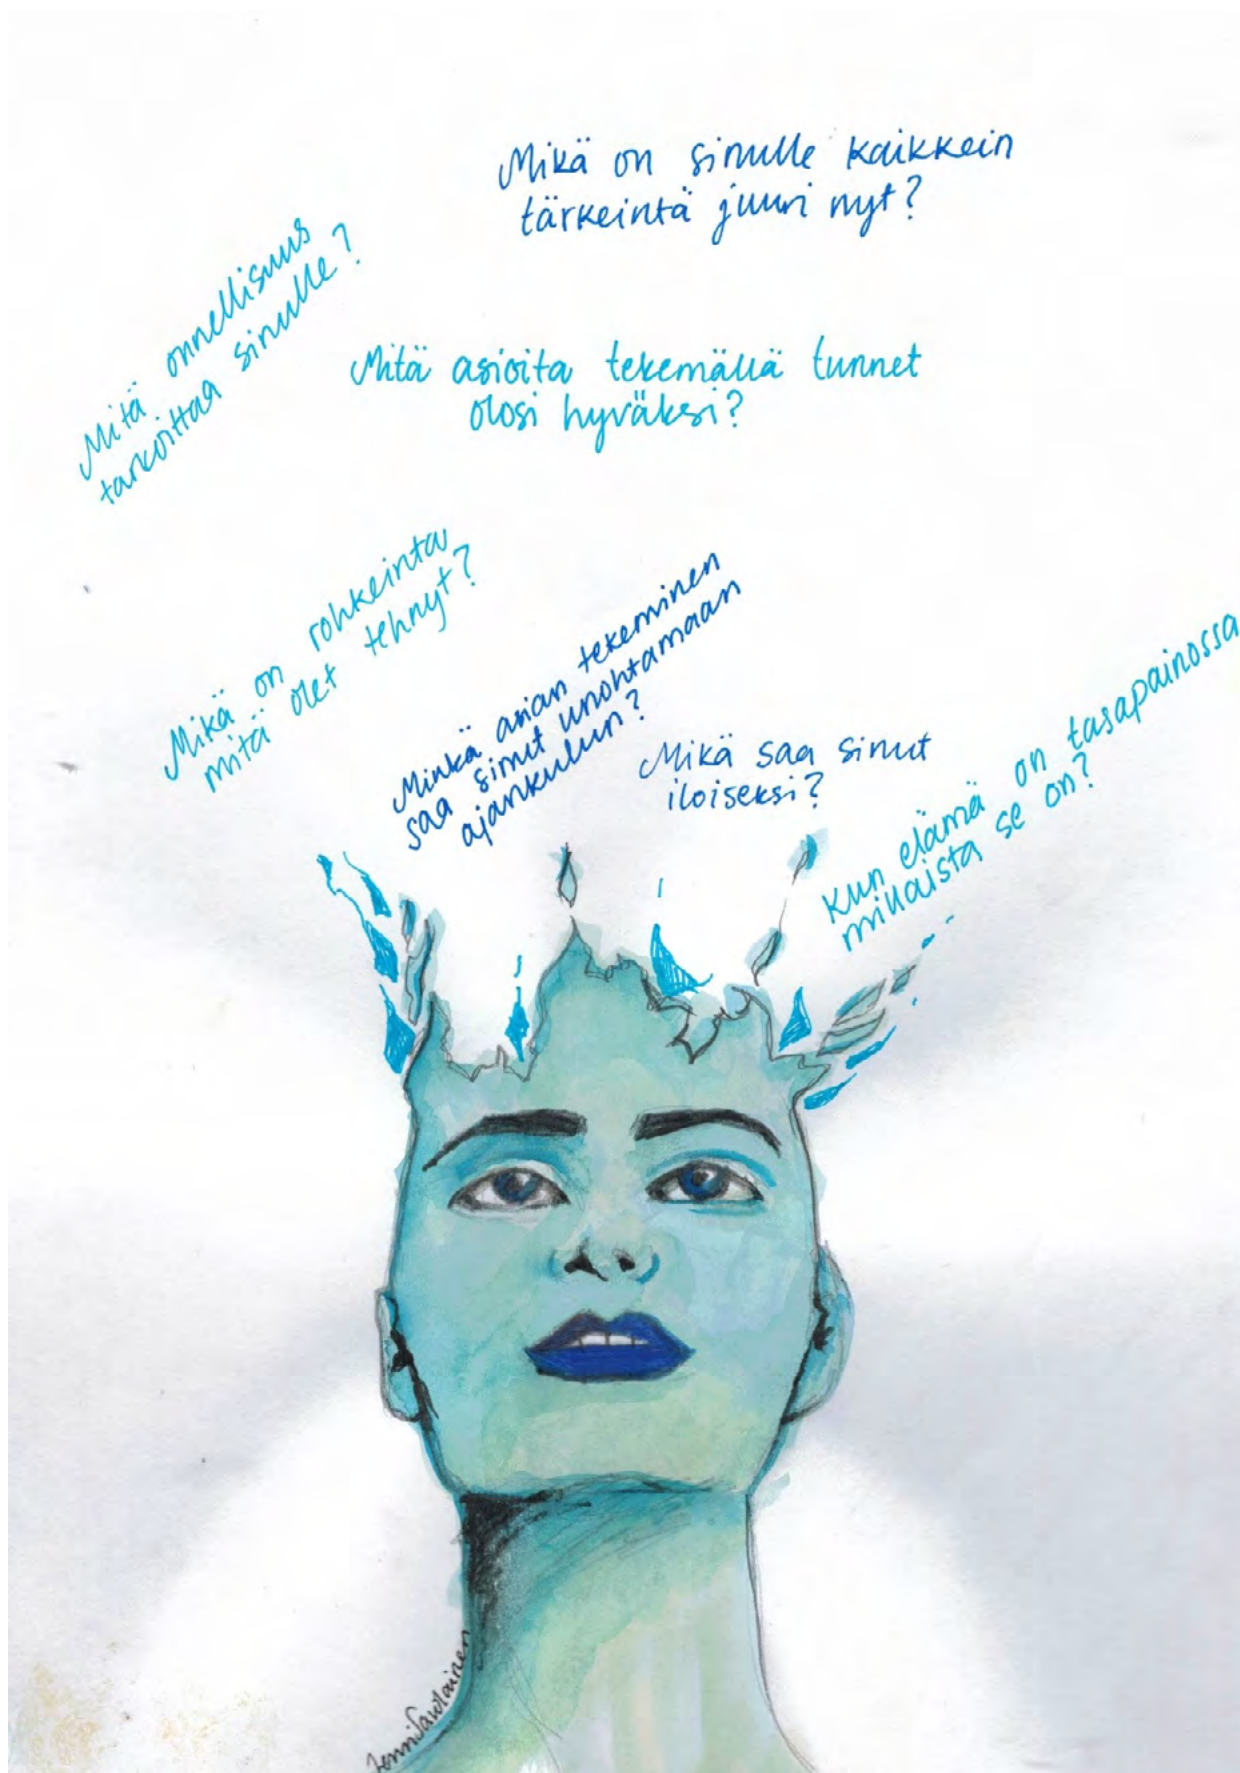 Mikä on sinulle kaikkein
tärkeintä juuri nyt?
Mitä onnellisuus
tarkoittaa sinulle?
Mitä asioita tekemällä tunnet
olosi hyväksi?
Mikä on rohkeinta
mitä olet tehnyt?
Minkä asian tekeminen
saa sinut unohtamaan
ajankulun?
Mikä saa sinut
iloiseksi?
Kun elämä on tasapainossa
millaista se on?
Jenni